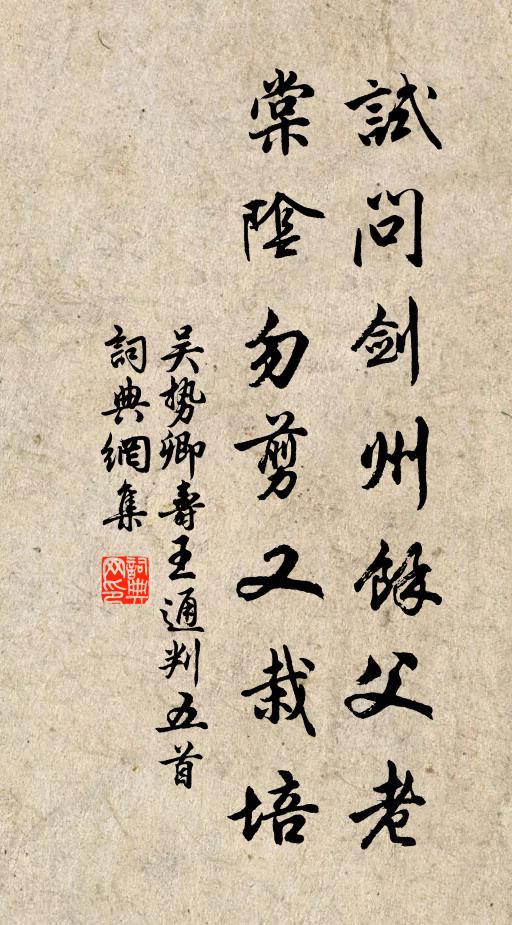 試問劍州餘父老
棠陰勿剪又栽培
吴势卿壽王通判五首
詞典網集
詞典
网印